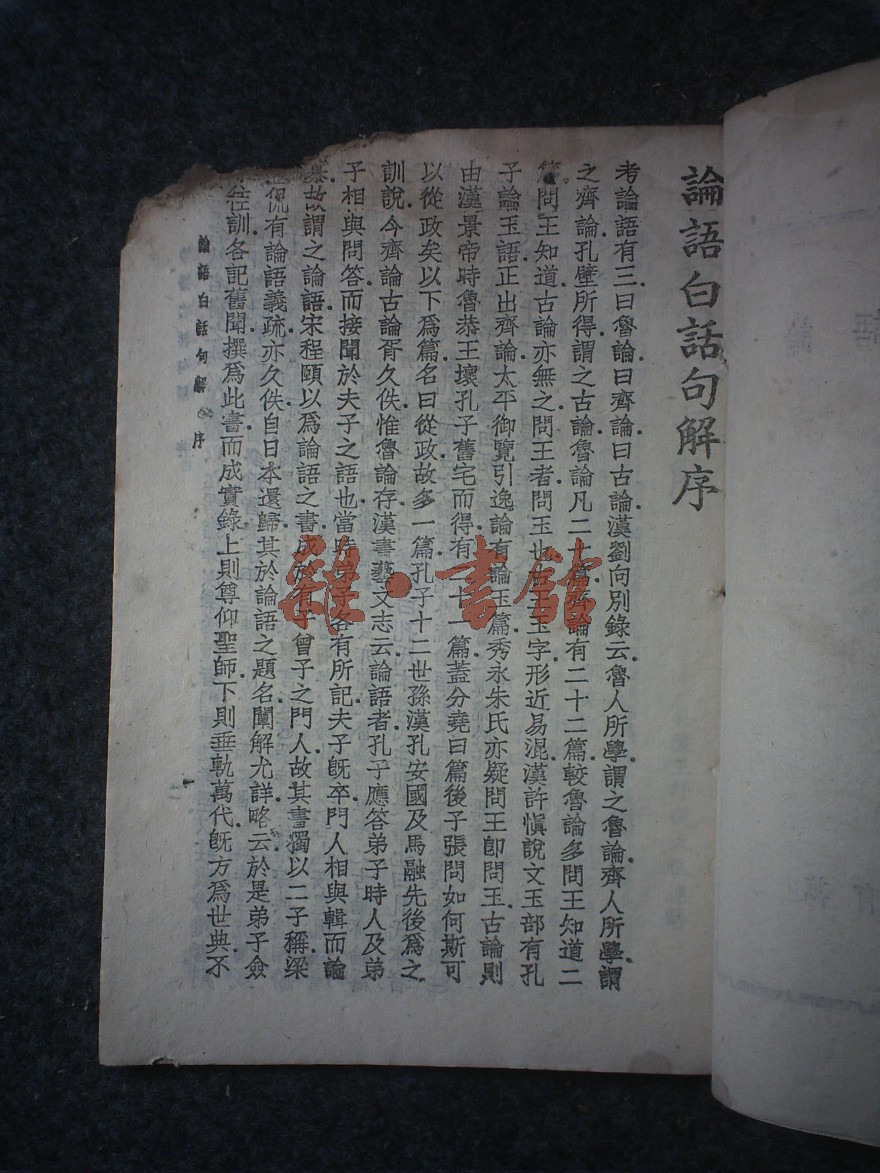 論語白話句解序
考論語有三曰魯論曰齊論曰古論漢劉向別錄云魯人所學謂之魯論齊人所學謂
之齊論孔壁所得謂之古論魯論凡二十篇齊論有二十二篇較魯論多問王知道二
篇問王知道古論亦無之問王者問玉也古王玉字形近易混漢許慎說文玉部有孔
子論玉語正出齊論太平御覽引逸論有論玉篇秀永朱氏亦疑問王卽問玉古論則
由漢景帝時魯恭王壞孔子舊宅而得有二十一篇蓋分堯曰篇後子張問如何斯可
以從政矣以下爲篇名曰從政故多一篇孔子十二世孫漢孔安國及馬融先後爲之
訓說今齊論古論胥久佚惟魯論存漢書藝文志云論語者孔子應答弟子時人及弟
子相與問答而接聞於夫子之語也當時弟子各有所記夫子旣卒門人相與輯而論
故謂之論語宋程頤以爲論語之書成於有子曾子之門人故其書獨以二子稱梁
侃有論語義疏亦久佚自日本還歸其於論語之題名闡解尤詳略云於是弟子僉
往訓各記舊聞撰爲此書而成實錄上則尊仰聖師下則垂軌萬代旣方爲世典不
論語白話句解 序
雜·書館
論